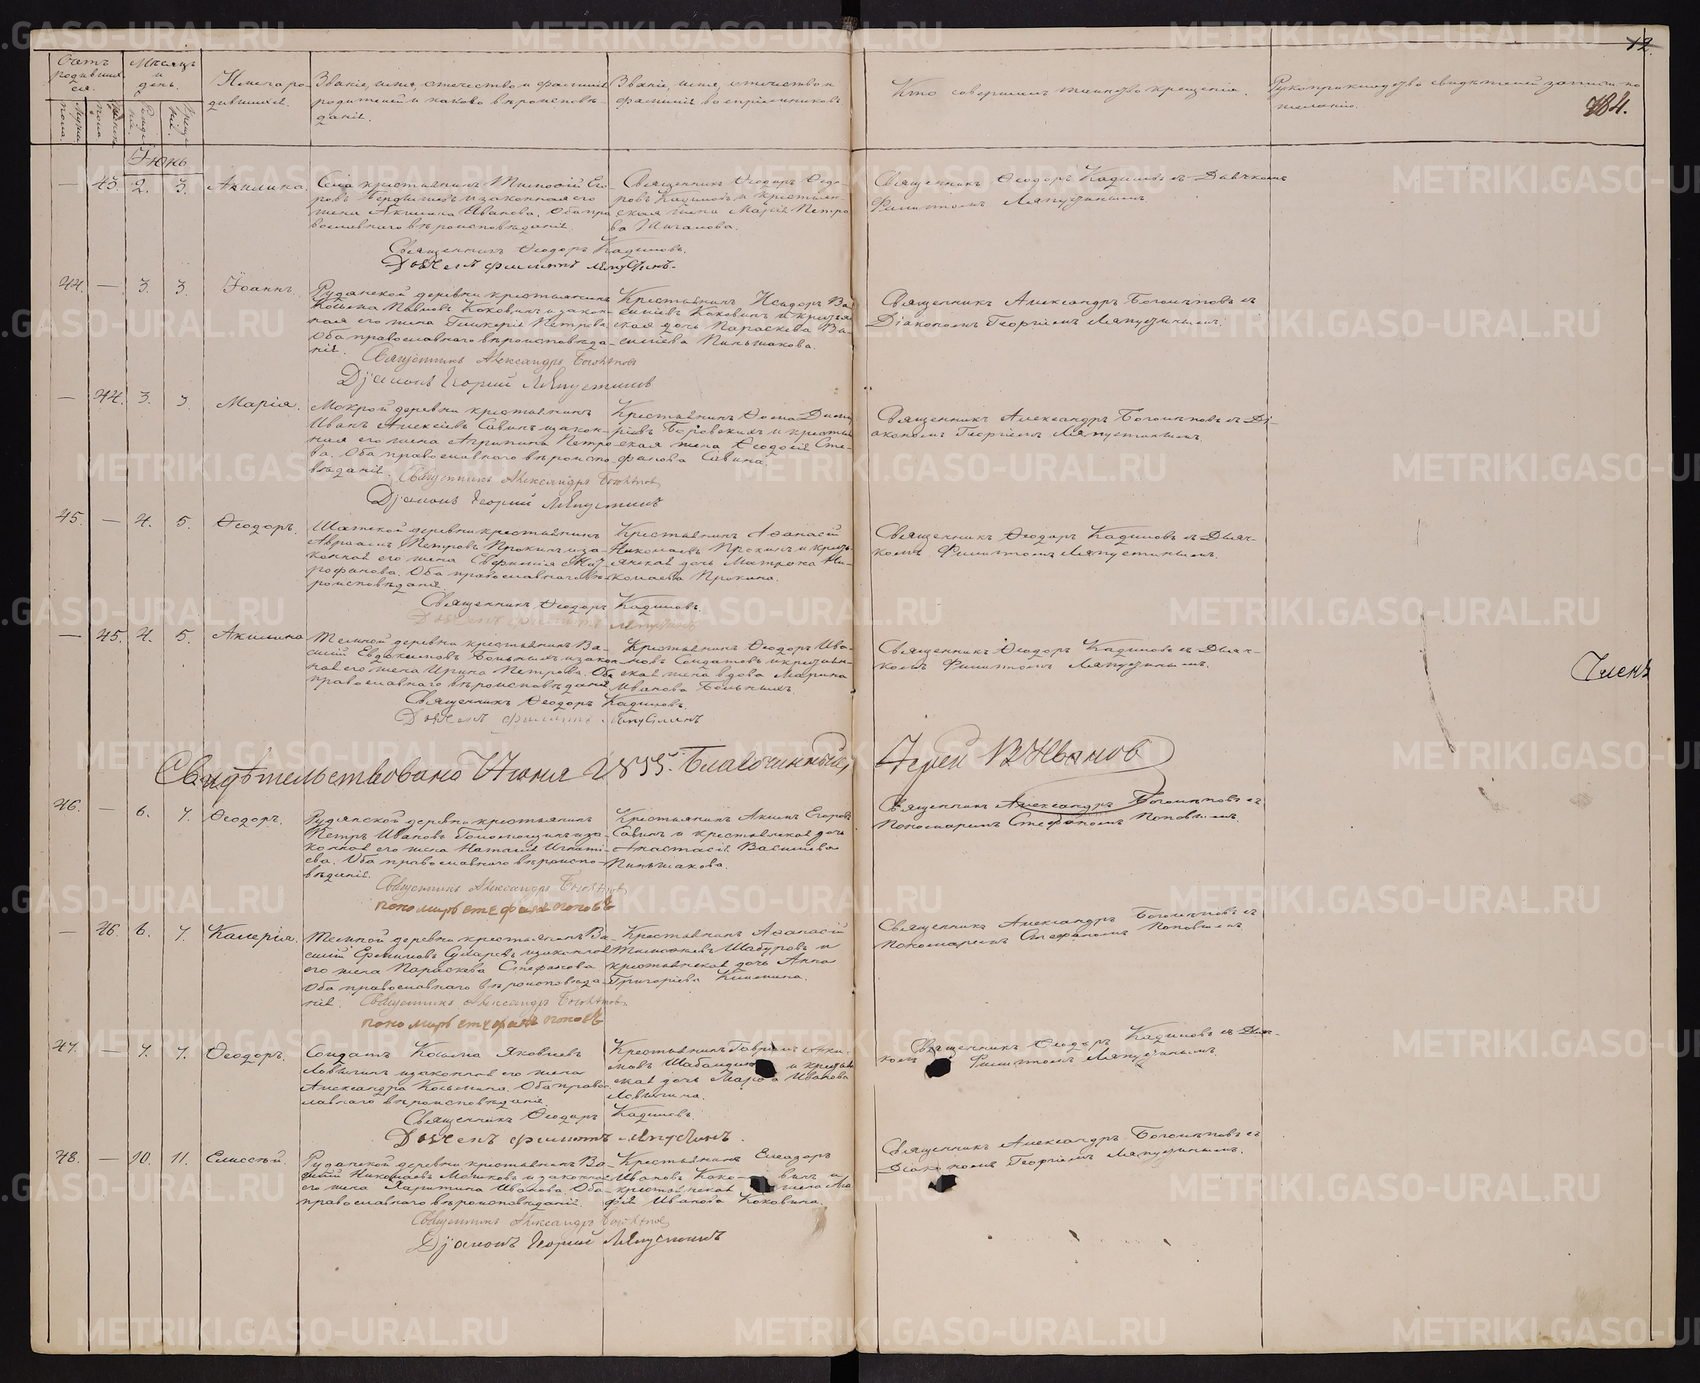 12.
184.
Счетъ родившихся.
Мѣсяцъ и день.
Имена родившихся.
Званіе, имя, отчество и фамилія родителей и какого вѣроисповѣданія.
Званіе, имя, отчество и фамилія воспріемниковъ.
Кто совершалъ таинство крещенія.
Рукоприкладство свидѣтелей записи по желанію.
Іюнь
— 43. 2. 3. Акилина.
жена Акилина Иванова. Оба православнаго вѣроисповѣданія.
Священникъ Ѳеодоръ Ѳедоровъ Кадиловъ и крестьянская жена Марія Петрова
Священникъ Ѳеодоръ Кадиловъ съ Дьячкомъ
Филиппомъ Ляпустинымъ.
Священникъ Ѳеодоръ Кадиловъ.
Дьячекъ Филиппъ Ляпустинъ.
44. — 3. 3. Іоаннъ.
Рудянской деревни крестьянинъ
Козьма Павловъ Коковинъ и законная его жена Гликерія Петрова
Оба православнаго вѣроисповѣданія.
Крестьянинъ Исидоръ Васильевъ Коковинъ и крестьянская дочь Параскева Васильева Пиньжакова.
Священникъ Александръ Боголѣповъ съ
Діакономъ Георгіемъ Ляпустинымъ.
Священникъ Александръ Боголѣповъ
Діаконъ Георгій Ляпустинъ
— 44. 3. 3. Марія.
Мокрой деревни крестьянинъ
Иванъ Алексѣевъ Савинъ и законная его жена Агрипина Петрова. Оба православнаго вѣроисповѣданія.
Крестьянинъ
и крестьянская жена Ѳеодосія Стефанова Савина.
Священникъ Александръ Боголѣповъ съ Діакономъ Георгіемъ Ляпустинымъ.
Священникъ Александръ Боголѣповъ
Діаконъ Георгій Ляпустинъ
45. — 4. 5. Ѳеодоръ.
деревни крестьянинъ
Авраамъ Петровъ Прокинъ и законная его жена Евфимія
Оба православнаго вѣроисповѣданія.
Крестьянинъ Аѳанасій
Николаевъ Прокинъ и крестьянская дочь Матрона Николаева Прокина.
Священникъ Ѳеодоръ Кадиловъ съ Дьячкомъ Филиппомъ Ляпустинымъ.
Священникъ Ѳеодоръ Кадиловъ.
Дьячекъ Филиппъ Ляпустинъ
— 45. 4. 5. Акилина
Темной деревни крестьянинъ Василій Евдокимовъ Больныхъ и законная его жена Ирина Петрова. Оба
православнаго вѣроисповѣданія.
Крестьянинъ Ѳеодоръ Ивановъ Солдатовъ и крестьянская жена вдова Марина
Иванова Больныхъ.
Священникъ Ѳеодоръ Кадиловъ съ Дьячкомъ Филиппомъ Ляпустинымъ.
Священникъ Ѳеодоръ Кадиловъ.
Дьячекъ Филиппъ Ляпустинъ
Членъ
Свидѣтельствовано Іюня Благочинный,
Іерей В Ивановъ
46. — 6. 7. Ѳеодоръ.
Рудянской деревни крестьянинъ
Петръ Ивановъ и законная его жена Наталія Игнатіева. Оба православнаго вѣроисповѣданія.
Крестьянинъ Акимъ Егоровъ
Савинъ и крестьянская дочь
Анастасія Васильева
Пиньжакова.
Священникъ Александръ Боголѣповъ съ
Пономаремъ Стефаномъ Поповымъ.
Священникъ Александръ Боголѣповъ
пономарь стефанъ поповъ
— 46. 6. 7. Калерія.
Темной деревни крестьянинъ Василій и законная
его жена Параскева Стефанова
Оба православнаго вѣроисповѣданія.
Крестьянинъ Аѳанасій
Шабуровъ и
крестьянская дочь Анна
Григорьева
Священникъ Александръ Боголѣповъ съ
Пономаремъ Стефаномъ Поповымъ
Священникъ Александръ Боголѣповъ
пономарь стефанъ поповъ
47. — 7. 7. Ѳеодоръ.
Солдатъ Козьма Яковлевъ
Ловыгинъ и законная его жена
Александра Козьмина. Оба православнаго вѣроисповѣданія.
Крестьянинъ Гавріилъ
и крестьянская дочь Марѳа Иванова
Ловыгина.
Священникъ Ѳеодоръ Кадиловъ съ Дьячкомъ Филиппомъ Ляпустинымъ
Священникъ Ѳеодоръ Кадиловъ.
Дьячекъ Филиппъ Ляпустинъ.
48. — 10. 11. Елиссей.
Рудянской деревни крестьянинъ Василій Николаевъ и законная
его жена Харитина Иванова. Оба
православнаго вѣроисповѣданія.
Крестьянинъ
Ивановъ Коковинъ и
крестьянская
Иванова Коковина.
Священникъ Александръ Боголѣповъ съ
Діакономъ Георгіемъ Ляпустинымъ.
Священникъ Александръ Боголѣповъ
Діаконъ Георгій Ляпустинъ
METRIKI.GASO-URAL.RU